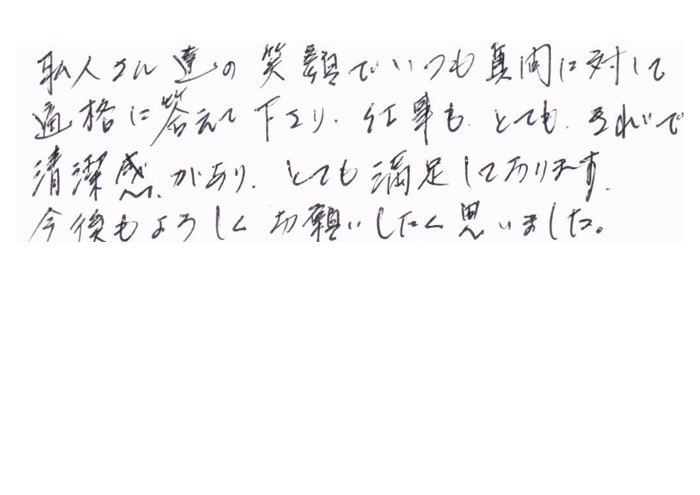 職人さん達の笑顔でいつも質問に対して
適格に答えて下さり、仕事も、とても、きれいで
清潔感、があり、とても満足しております。
今後もよろしくお願いしたく思いました。